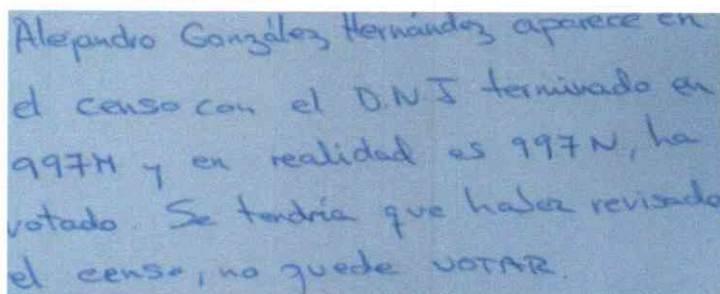 Alejandro González Hernández aparece en
el censo con el D.N.I terminado en
997H y en realidad es 997N, ha
votado. Se tendría que haber revisado
el censo, no puede VOTAR.